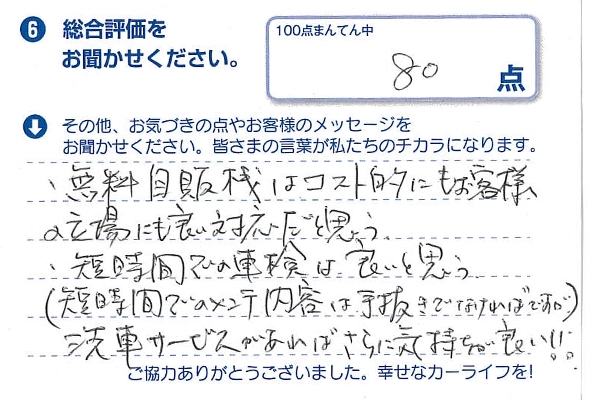 6 総合評価を
お聞かせください。
100点まんてん中
80 点
その他、お気づきの点やお客様のメッセージを
お聞かせください。皆さまの言葉が私たちのチカラになります。
・無料自販機はコスト的にもお客様
の立場にも良い対応だと思う。
・短時間での車検は良いと思う
(短時間でのメンテ内容は手抜きでなければですが)
洗車サービスがあればさらに気持ちが良い!!
ご協力ありがとうございました。幸せなカーライフを!